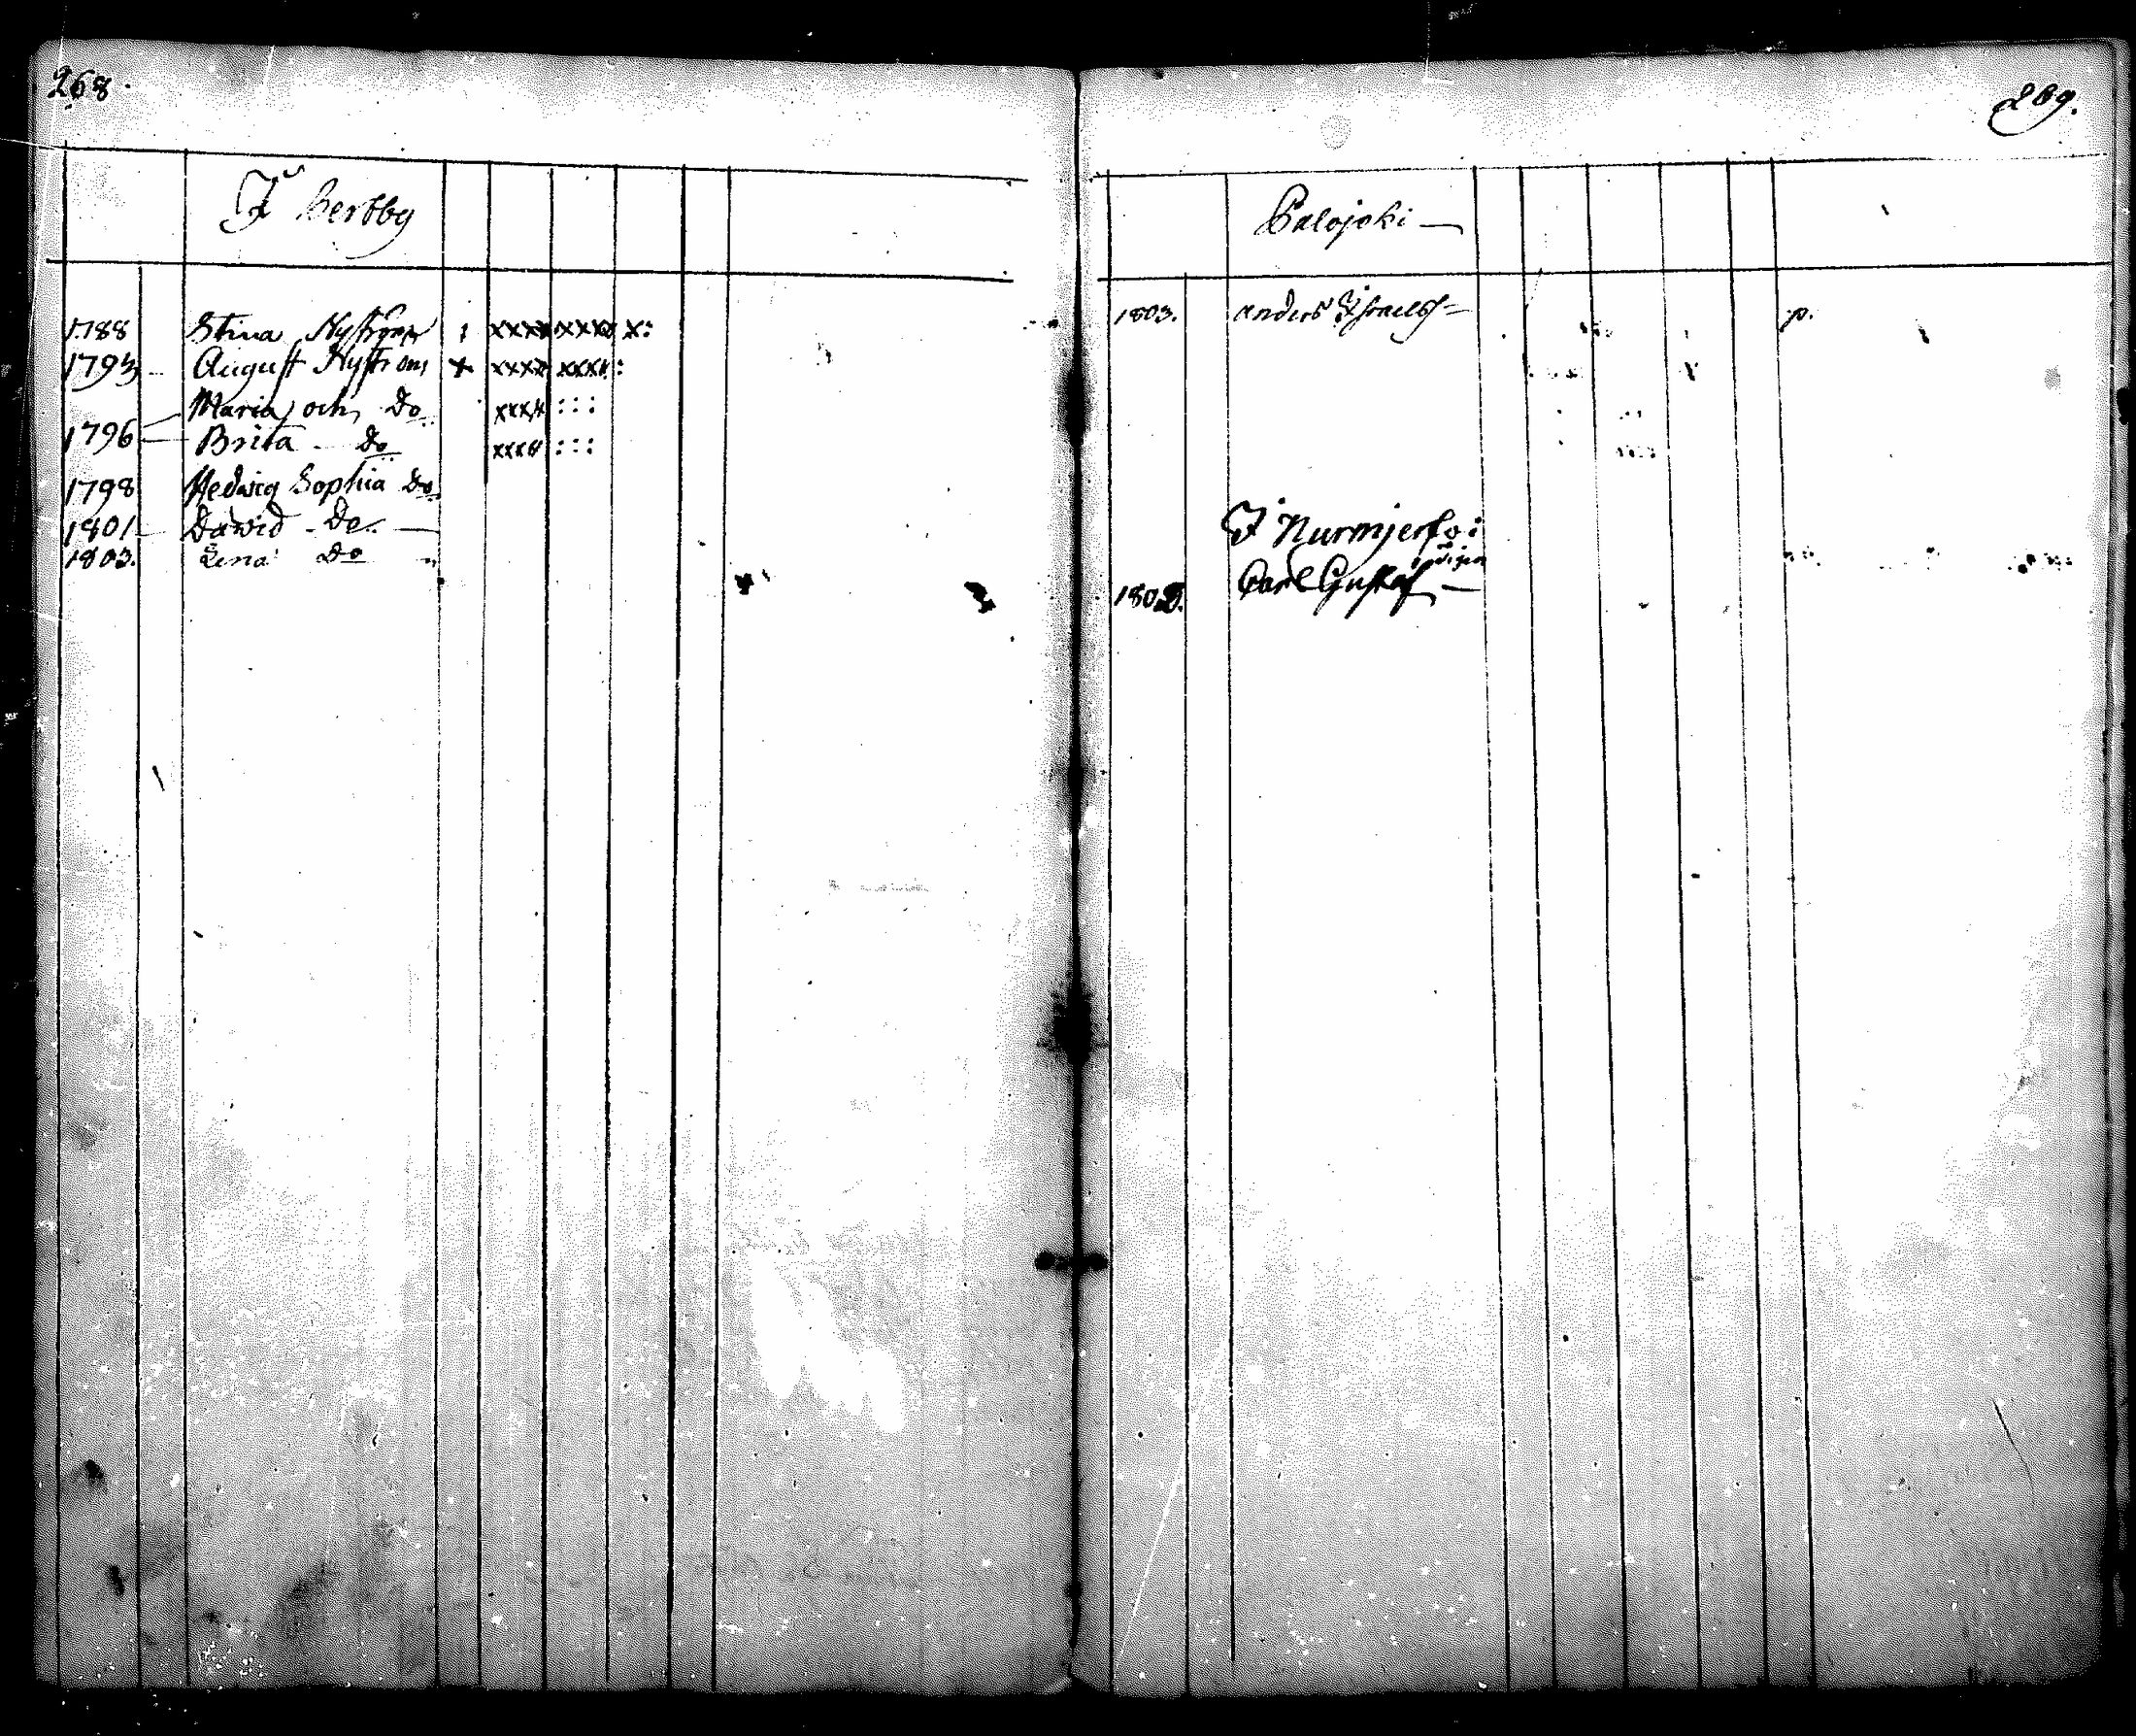 268.
I Kertby
1788 Stina Nyström : xxxx xxxx x:
1793 August Nyström x xxxx xxxx:
Maria och Do xxxx :::
1796 Brita Do xxxx :::
1798 Hedwig Sophia Do
1801 Dawid Do
1803. Lena Do
269.
Palojoki
1803. Anders Israelss p.
I Nurmjerfvi
1802. Carl Gustaf